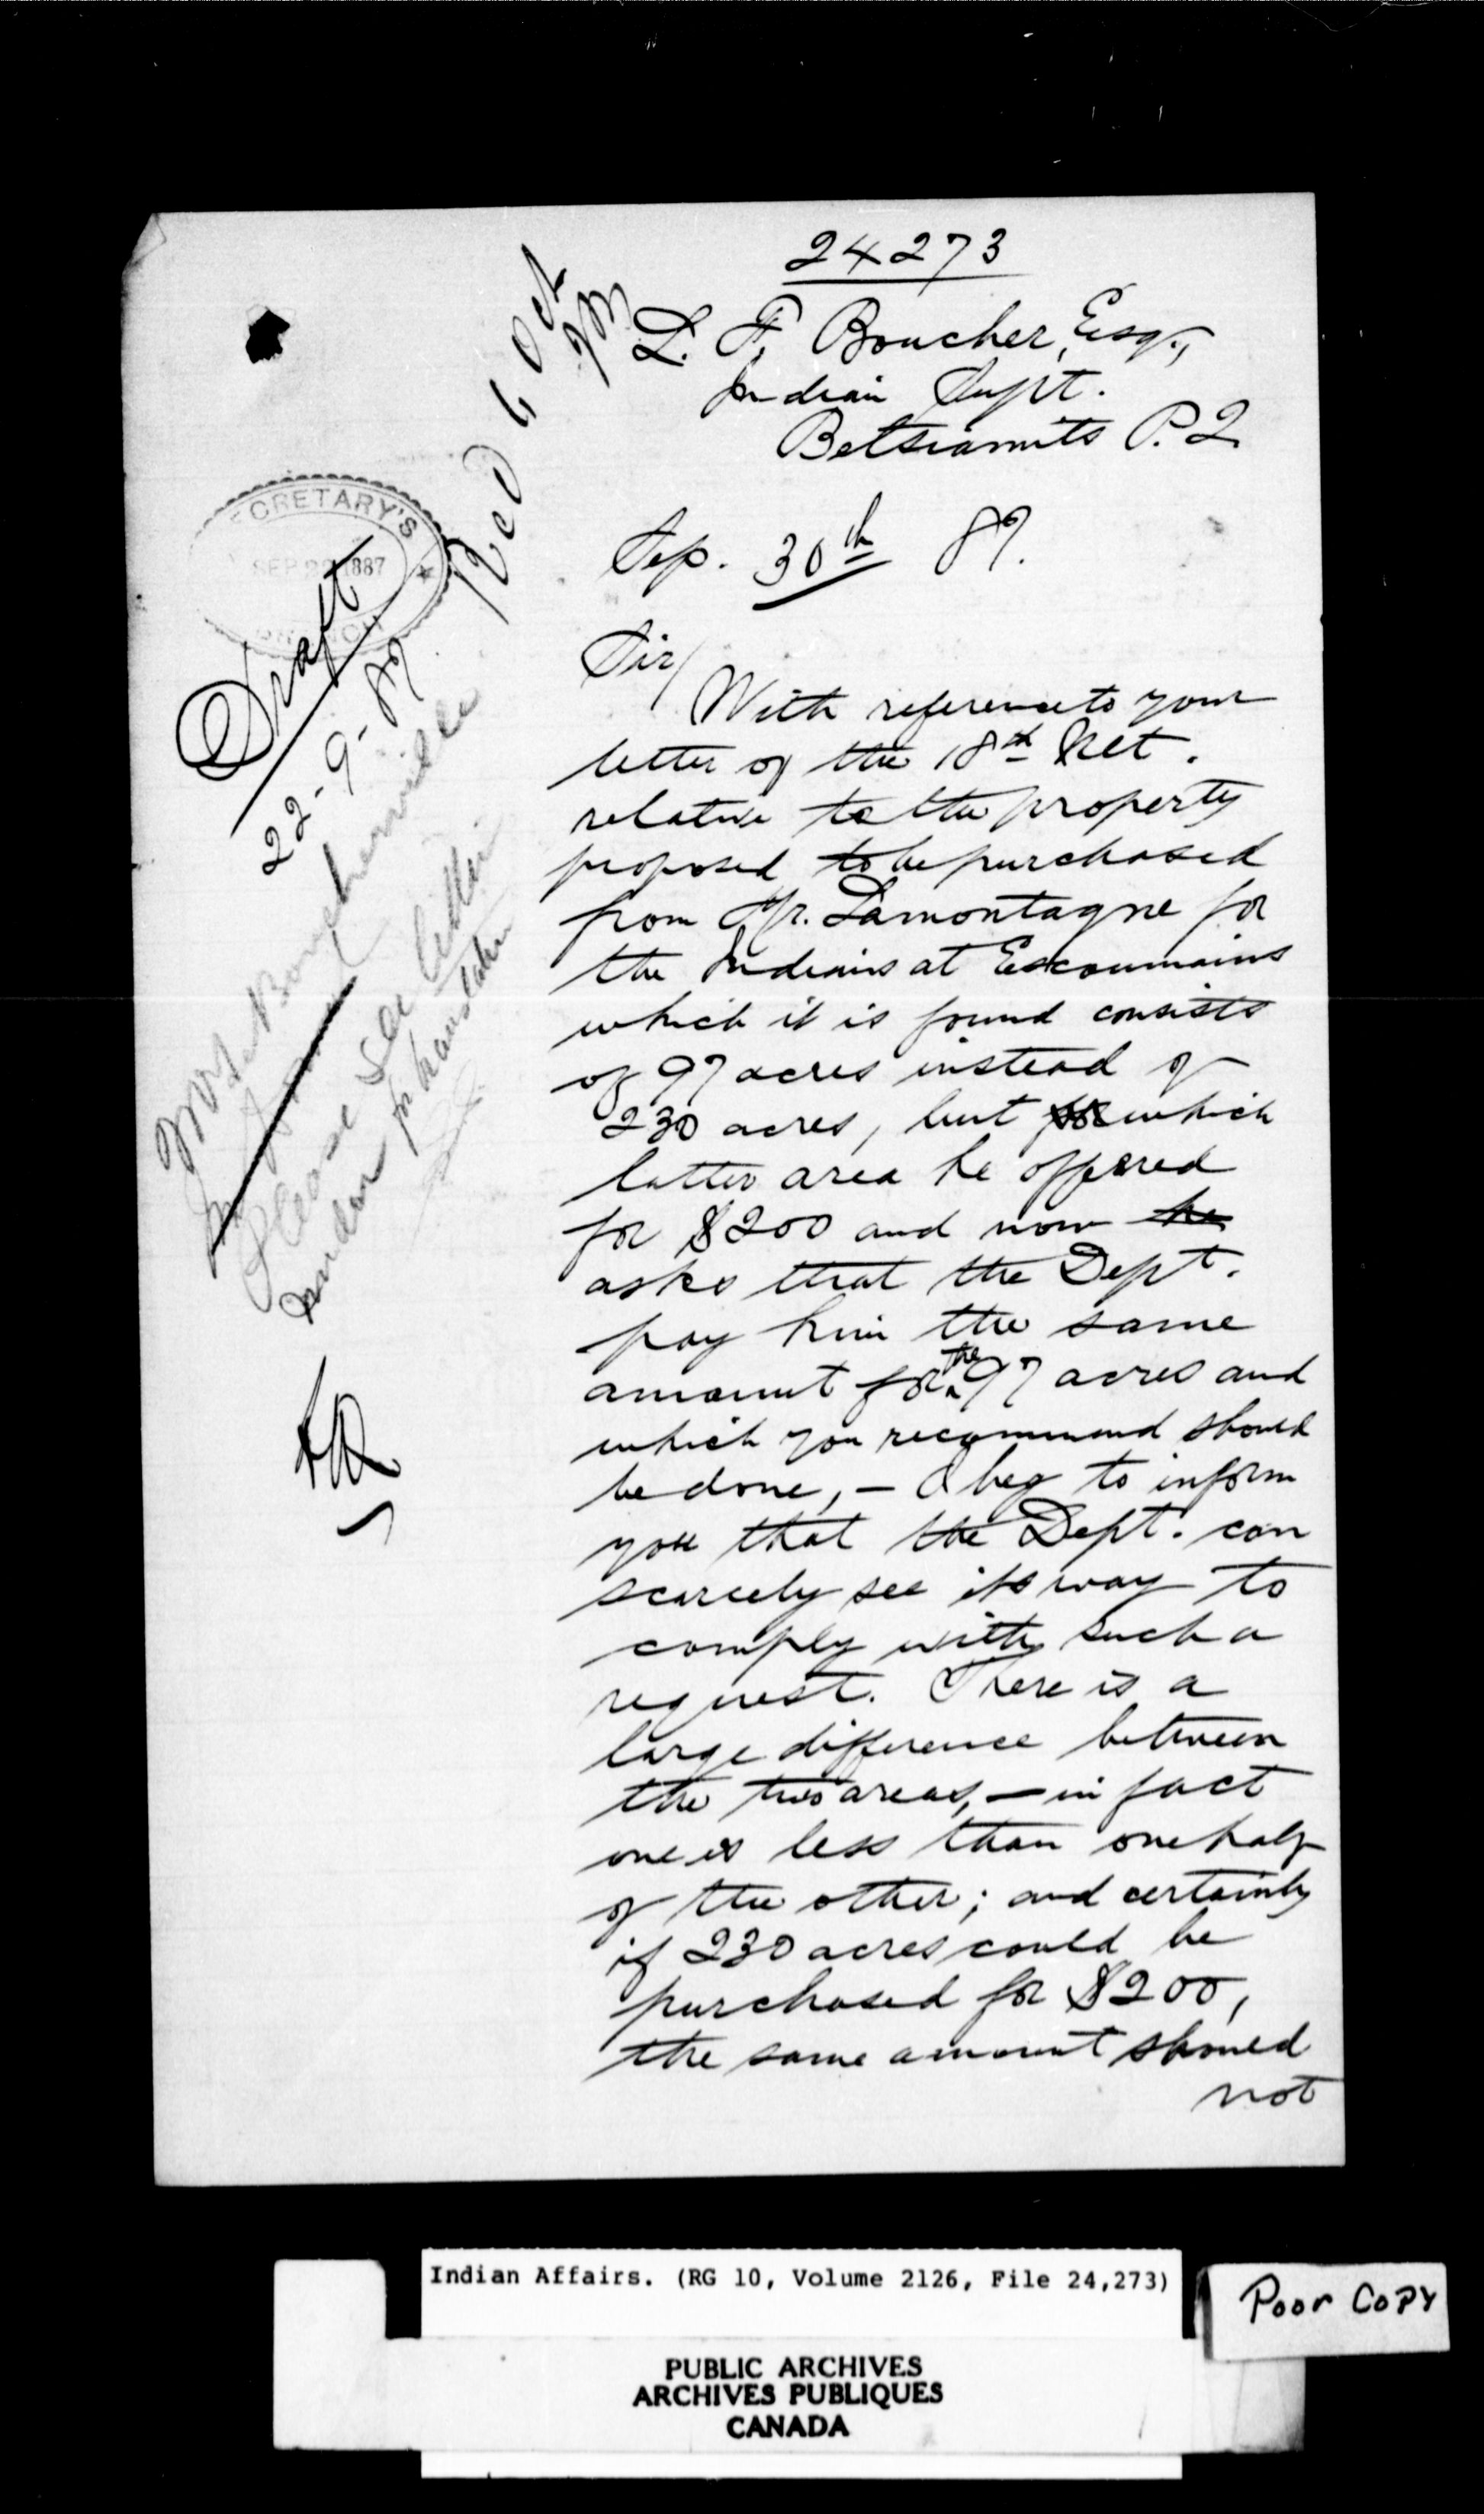 24273
L. F. Boucher, Esq.,
Indian Supt.
Betsiamits P.Q.
Sep. 30th 87.
Sir/
With reference to your
letter of the 18th Ult.
relative to the property
proposed to be purchased
from Mr. Lamontagne for
the Indians at Escoumains
which it is found consists
of 97 acres instead of
230 acres, but for which
latter area he offered
for $200 and now he
asks that the Dept.
pay him the same
amount for the 97 acres and
which you recommend should
be done, – I beg to inform
you that the Dept. can
scarcely see its way to
comply with such a
request. There is a
large difference between
the two areas, – in fact
one is less than one half
of the other; and certainly
if 230 acres could be
purchased for $200,
the same amount should
not
Recd 6 Oct
SECRETARY'S
SEP 22 1887
BRANCH
Draft
22-9-87
Mr de Boucherville
Please see letter
for translation
Indian Affairs. (RG 10, Volume 2126, File 24,273)
Poor Copy
PUBLIC ARCHIVES
ARCHIVES PUBLIQUES
CANADA